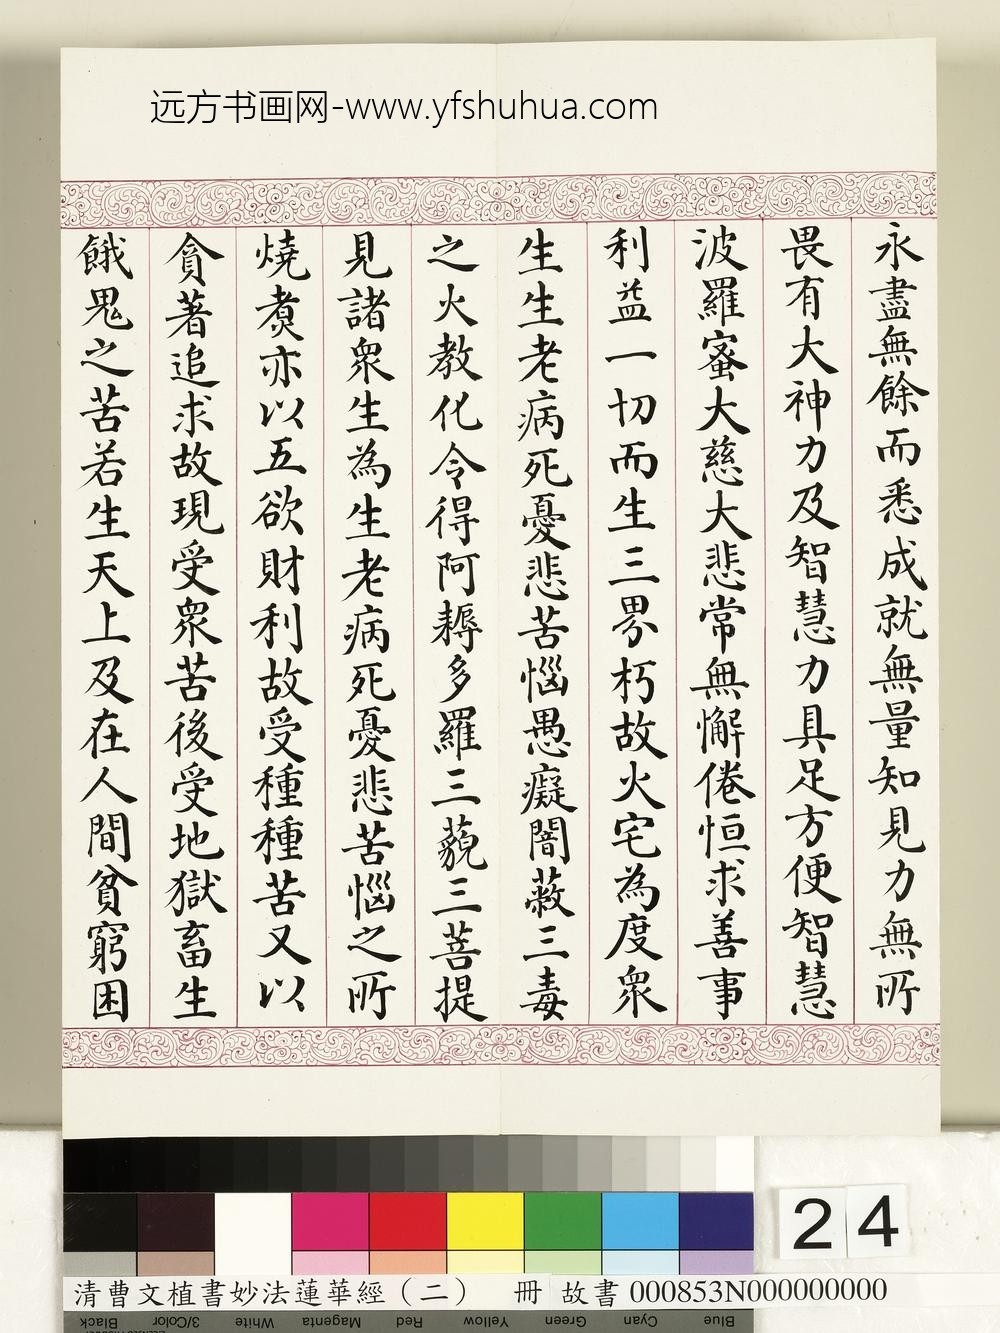 远方书画网-www.yfshuhua.com
永盡無餘而悉成就無量知見力無所
畏有大神力及智慧力具足方便智慧
波羅蜜大慈大悲常無懈倦恒求善事
利益一切而生三界朽故火宅為度衆
生生老病死憂悲苦惱愚癡闇蔽三毒
之火教化令得阿耨多羅三藐三菩提
見諸衆生為生老病死憂悲苦惱之所
燒煑亦以五欲財利故受種種苦又以
貪著追求故現受衆苦後受地獄畜生
餓鬼之苦若生天上及在人間貧窮困
24
清曹文植書妙法蓮華經（二） 冊 故書000853N000000000
Black 3/Color White Magenta Red Yellow Green Cyan Blue